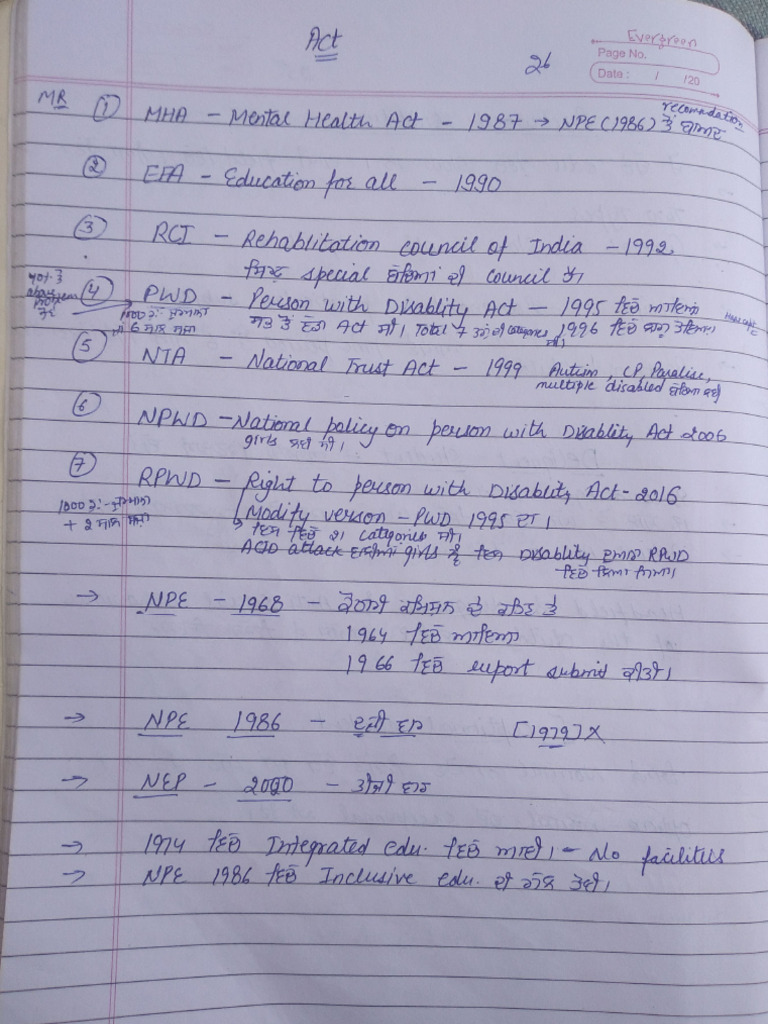 Act
26
Evergreen
Page No.
Date : / /20
MR
① MHA - Mental Health Act - 1987 → NPE (1986) ਤੋਂ ਬਾਅਦ
② EFA - Education for all - 1990
③ RCI - Rehablitation council of India - 1992
ਸਿਰਫ਼ special ਬੱਚਿਆਂ ਦੀ council ਹੈ।
④ PWD - Person with Disablity Act - 1995 ਵਿੱਚ ਆਇਆ
1000 ਰੁ:- ਜੁਰਮਾਨਾ
ਸਭ ਤੋਂ ਵੱਡਾ Act ਸੀ। Total 7 categories 1996 ਵਿੱਚ ਲਾਗੂ ਹੋਇਆ
ਜਾਂ 6 ਸਾਲ ਸਜ਼ਾ
⑤ NTA - National Trust Act - 1999 Autism, CP, Paralise,
multiple disabled ਬੱਚਿਆਂ ਲਈ
⑥ NPWD - National policy on person with Disablity Act 2006
girls ਲਈ ਸੀ।
⑦ RPWD - Right to person with Disablity Act - 2016
1000 ਰੁ:- ਜੁਰਮਾਨਾ
+ 2 ਸਾਲ ਸਜ਼ਾ
Modify verson - PWD 1995 ਦਾ।
ਇਸ ਵਿੱਚ 21 categories ਸੀ।
ACID attack ਵਾਲੀਆਂ girls ਨੂੰ ਇਸ Disablity RPWD
ਵਿੱਚ ਲਿਆ ਗਿਆ।
→ NPE - 1968 - ਕੋਠਾਰੀ ਕਮਿਸ਼ਨ ਦੇ ਕਹਿਣ ਤੇ
1964 ਵਿੱਚ ਆਇਆ
1966 ਵਿੱਚ report submid ਕੀਤੀ।
→ NPE 1986 - ਦੂਜੀ ਵਾਰ [1979] ×
→ NEP - 2020 - ਤੀਜੀ ਵਾਰ
→ 1974 ਵਿੱਚ Integrated edu. ਵਿੱਚ ਆਈ। - No facilities
→ NPE 1986 ਵਿੱਚ Inclusive edu. ਦੀ ਗੱਲ ਹੋਈ।